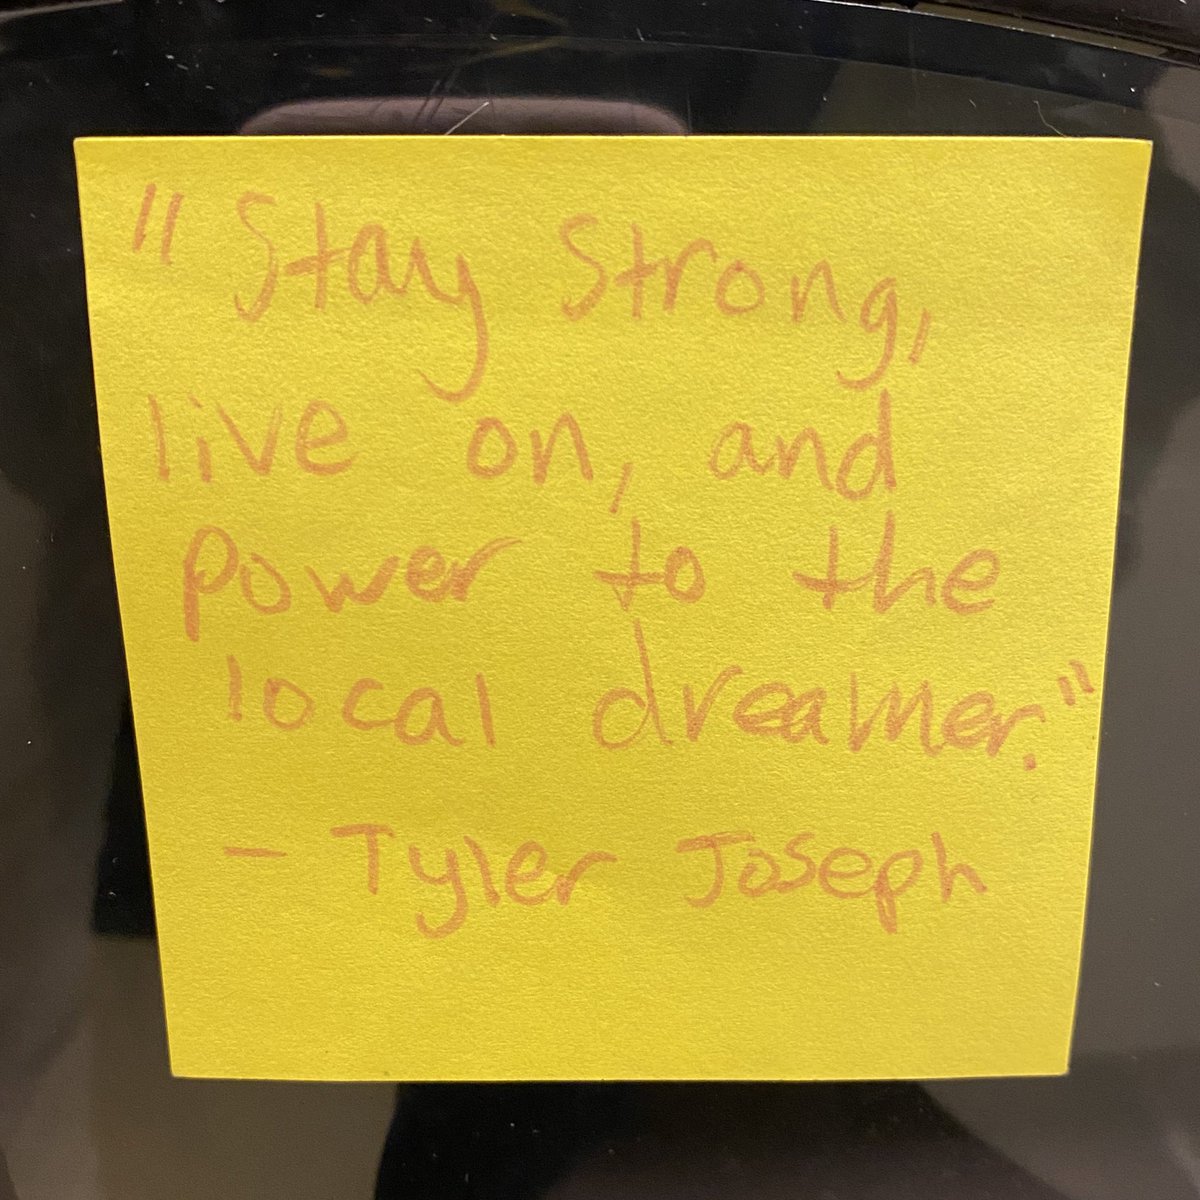 "Stay strong,
live on, and
power to the
local dreamer."
- Tyler Joseph